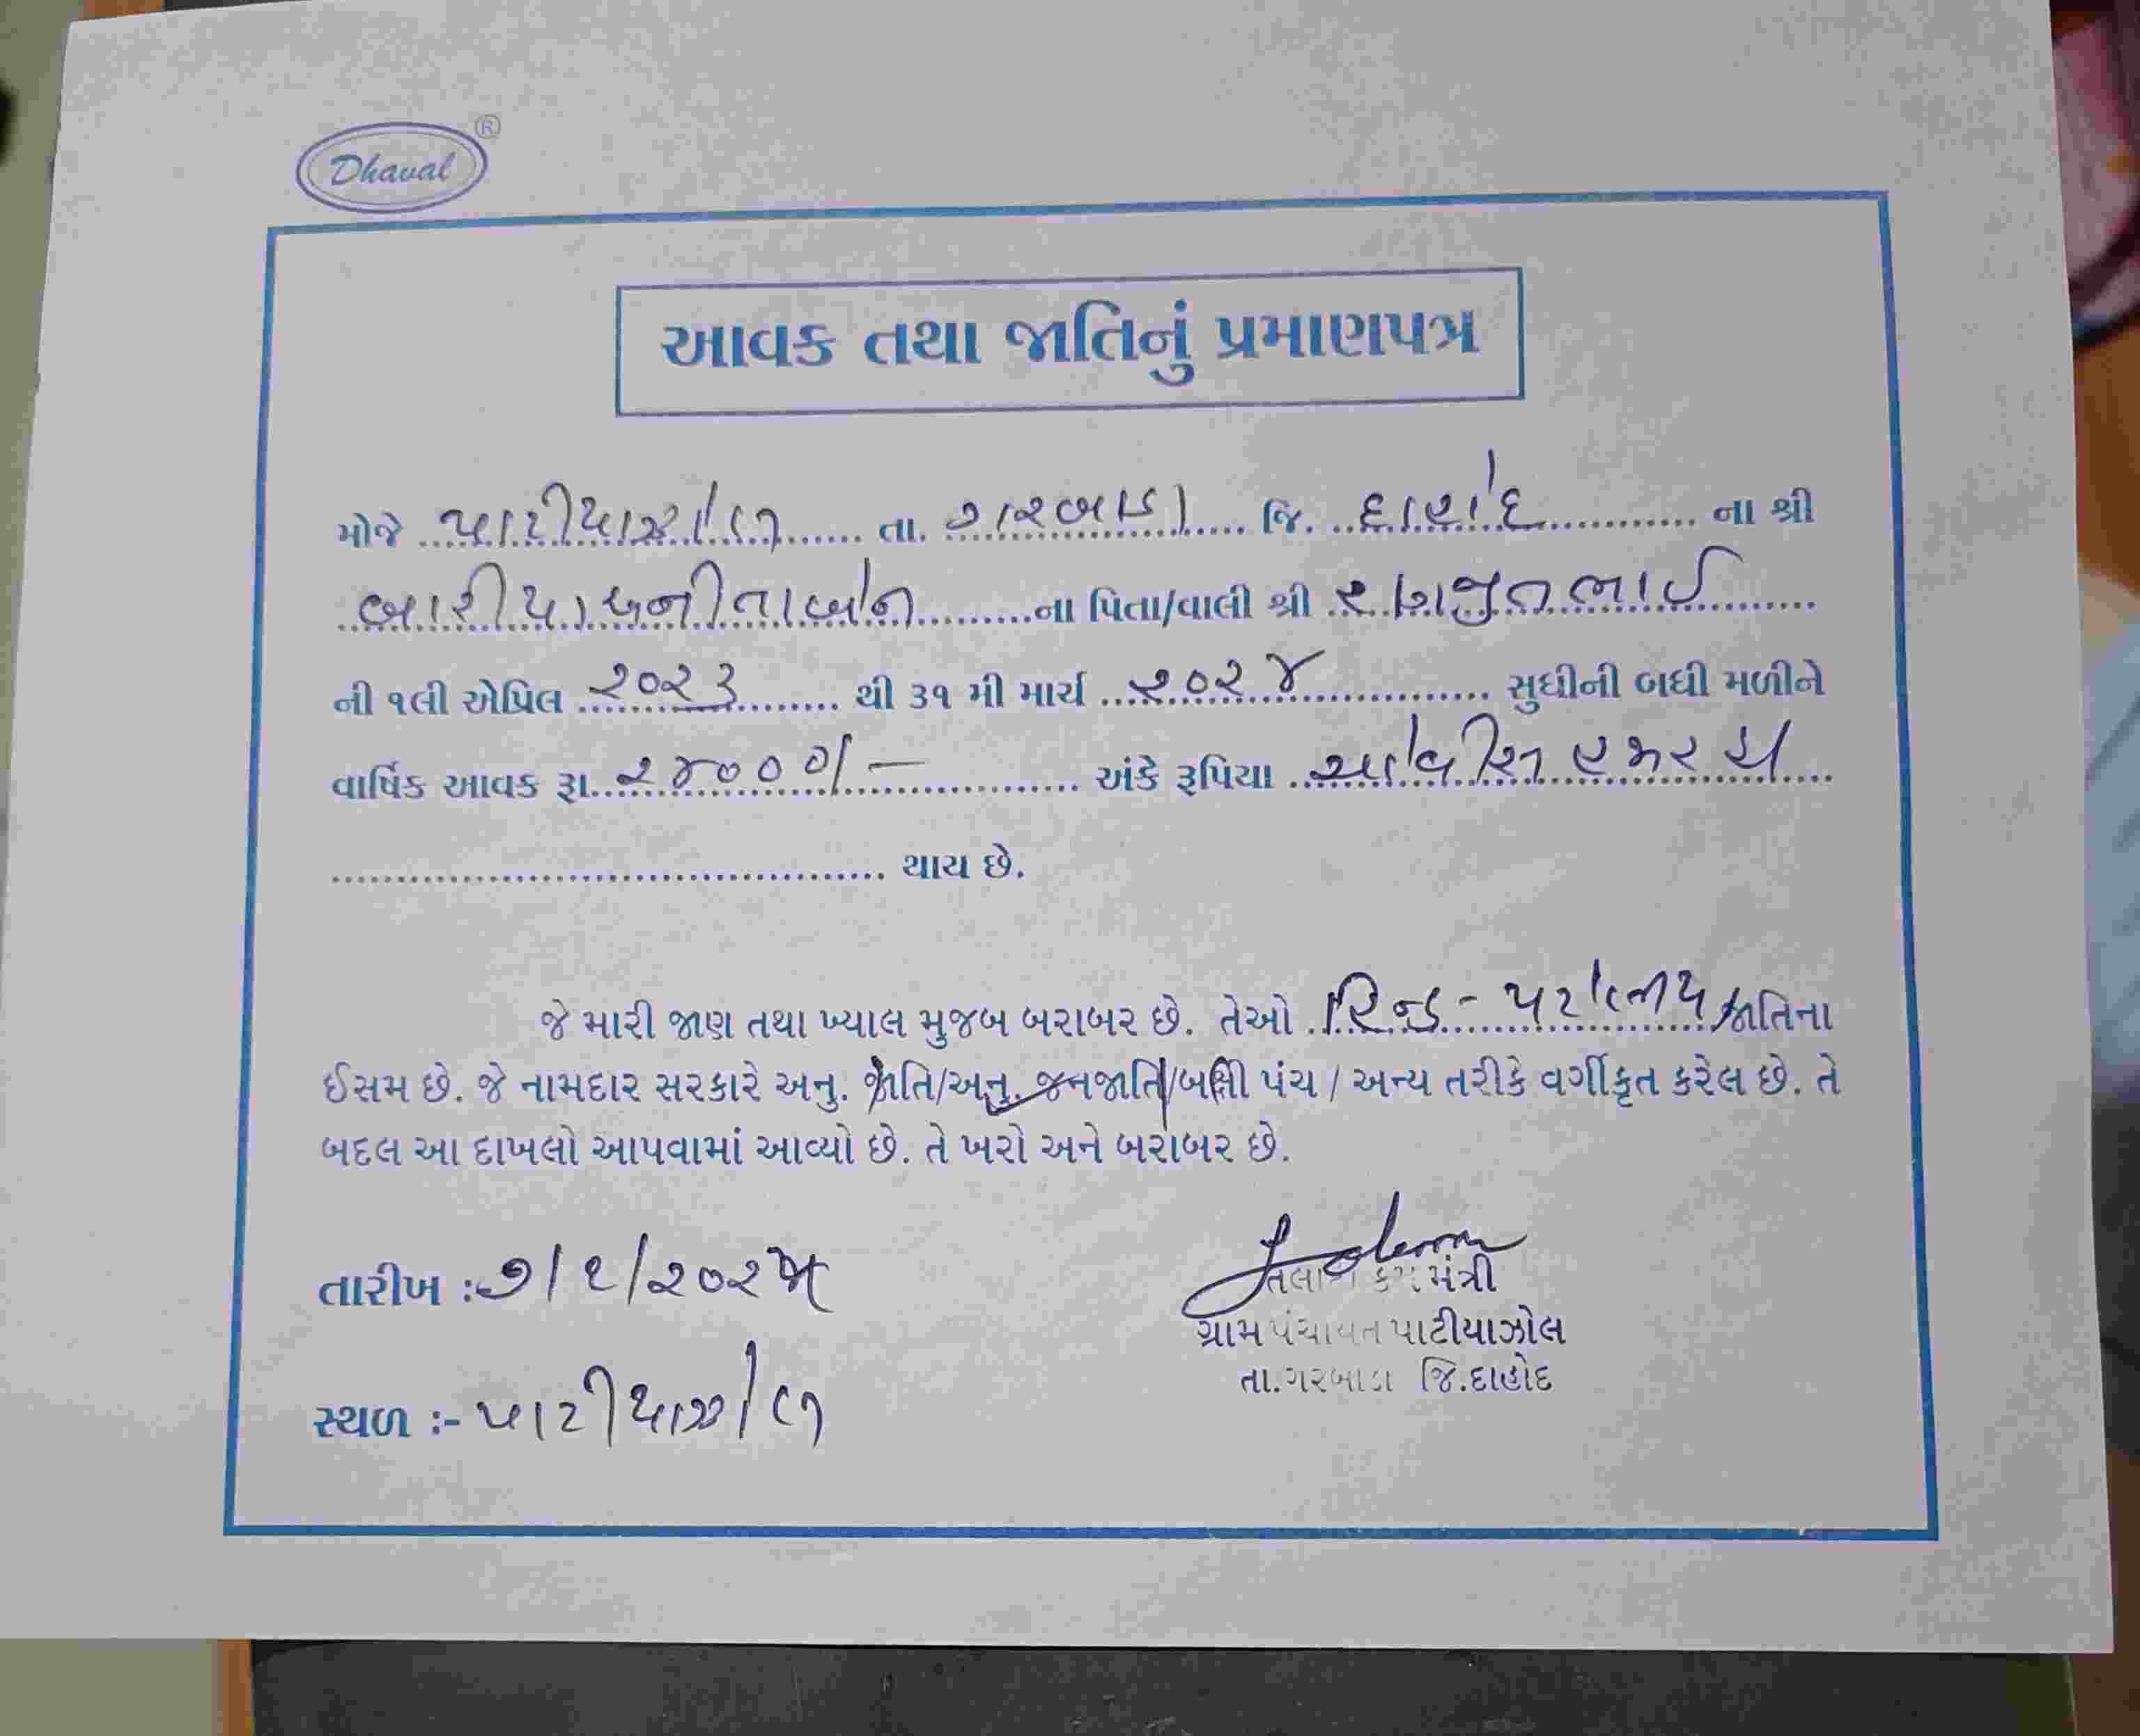 Dhaval ®
આવક તથા જાતિનું પ્રમાણપત્ર
મોજે પાટીયાઝોલ તા. ગરબાડા જિ. દાહોદ ના શ્રી
બારીયા સુનીતાબેન ના પિતા/વાલી શ્રી રણજીતભાઈ
ની ૧લી એપ્રિલ ૨૦૨૩ થી ૩૧ મી માર્ચ ૨૦૨૪ સુધીની બધી મળીને
વાર્ષિક આવક રૂા. ૨૪૦૦૦/- અંકે રૂપિયા ચોવીસ હજાર
થાય છે.
જે મારી જાણ તથા ખ્યાલ મુજબ બરાબર છે. તેઓ હિન્દુ - જાતિના
ઈસમ છે. જે નામદાર સરકારે અનુ. જાતિ/અનુ. જનજાતિ/બક્ષી પંચ / અન્ય તરીકે વર્ગીકૃત કરેલ છે. તે
બદલ આ દાખલો આપવામાં આવ્યો છે. તે ખરો અને બરાબર છે.
તારીખ : ૭/૧/૨૦૨૫
તલાટી કમ મંત્રી
ગ્રામ પંચાયત પાટીયાઝોલ
તા.ગરબાડા જિ.દાહોદ
સ્થળ :- પાટીયાઝોલ